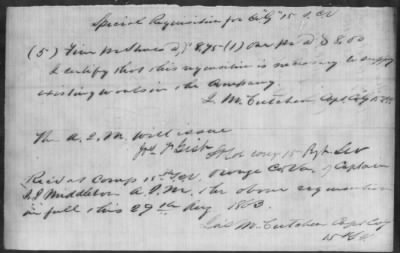 Special Requisition for Co "G" 15 S.C.V
(5) Five M Shoes a $8.75 (1) One Pr Do $8.00
I certify that this requisition is necessary to supply
existing wants in the Company
L. McCutchen Capt Co G 15 SCV
The A.Q.M. will issue
Jos F Gist
Comdg 15 Rgt SCV
Recd at Camp 15th S.C.V. Orange Co Va. of Captain
Middleton A.Q.M. the above requisition
in full this 29th Aug 1863.
McCutchen Capt Co G
15 SCV